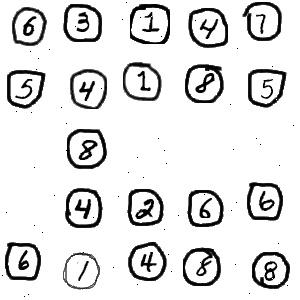 6 3 1 4 7
5 4 1 8 5
8
4 2 6 6
6 1 4 8 8